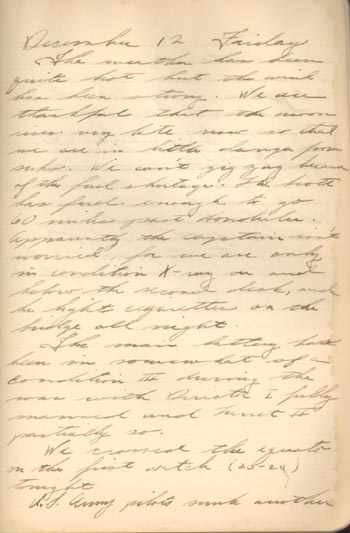 December 12 Friday
The weather has been
quite hot but the wind
has been strong. We are
thankful that the moon
rises very late now so that
we are in little danger from
subs. We can't zig zag because
of the fuel shortage. The boat
has fuel enough to go
60 miles past Honolulu.
Apparently the captain isn't
worried, for we are only
in condition X-ray on and
below the second deck, and
he light cigarettes on the
bridge all night.
The main battery has
been in somewhat of a
condition III during the
war with Director I fully
manned and turret II
partially so.
We crossed the equator
on the first watch (20-24)
tonight.
U.S. Army pilots sunk another